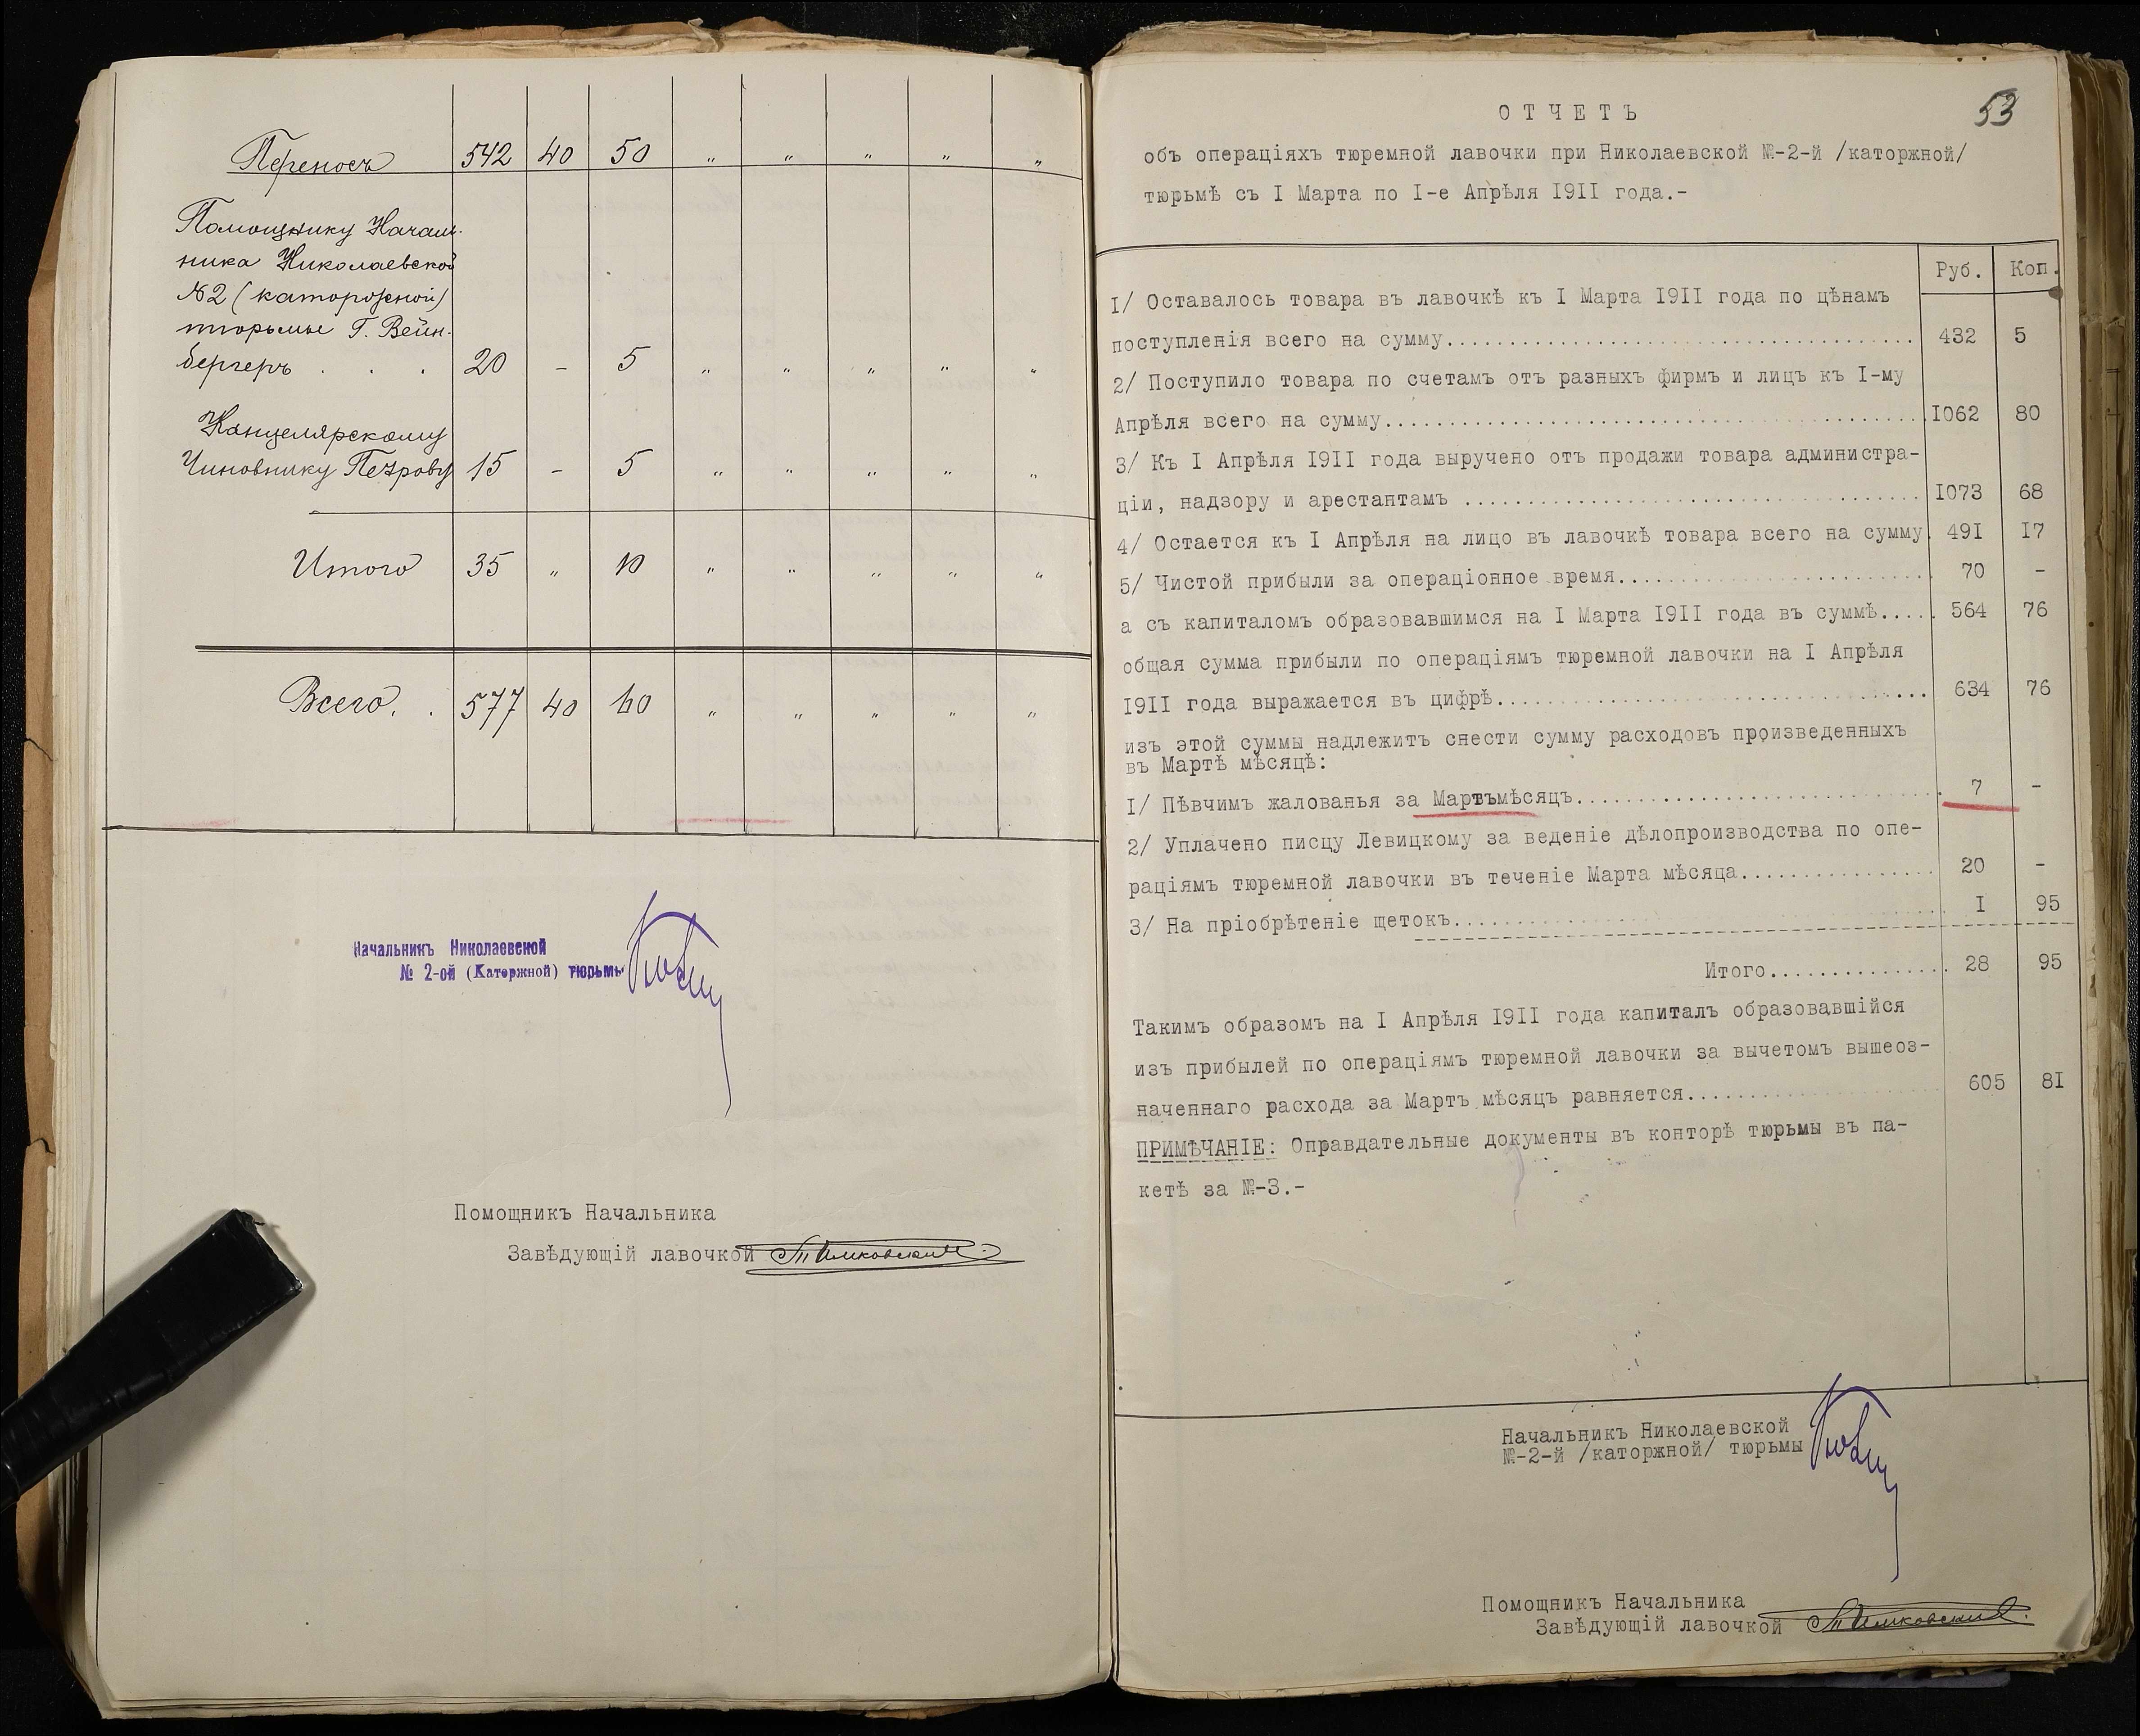 Переносъ 542 40 50 " " " " "
Помощнику Началь-
ника Николаевской
№2 (каторжной)
тюрьмы Г. Вейн-
бергеръ . . . 20 - 5 " " " " "
Канцелярскому
Чиновнику Петрову 15 - 5 " " " " "
Итого 35 " 10 " " " " "
Всего. . 577 40 60 " " " " "
Начальникъ Николаевской
№ 2-ой (Каторжной) тюрьмы
Помощникъ Начальника
Завѣдующій лавочкой
53
ОТЧЕТЪ
объ операціяхъ тюремной лавочки при Николаевской №-2-й /каторжной/
тюрьмѣ съ I Марта по I-е Апрѣля I9II года.-
Руб. Коп.
I/ Оставалось товара въ лавочкѣ къ I Марта I9II года по цѣнамъ
поступленія всего на сумму.................................... 432 5
2/ Поступило товара по счетамъ отъ разныхъ фирмъ и лицъ къ I-му
Апрѣля всего на сумму.......................................... I062 80
3/ Къ I Апрѣля I9II года выручено отъ продажи товара администра-
ціи, надзору и арестантамъ ................................... I073 68
4/ Остается къ I Апрѣля на лицо въ лавочкѣ товара всего на сумму. 49I I7
5/ Чистой прибыли за операціонное время......................... 70 -
а съ капиталомъ образовавшимся на I Марта I9II года въ суммѣ..... 564 76
общая сумма прибыли по операціямъ тюремной лавочки на I Апрѣля
I9II года выражается въ цифрѣ.................................. 634 76
изъ этой суммы надлежитъ снести сумму расходовъ произведенныхъ
въ Мартѣ мѣсяцѣ:
I/ Пѣвчимъ жалованья за Мартъмѣсяцъ............................. 7 -
2/ Уплачено писцу Левицкому за веденіе дѣлопроизводства по опе-
раціямъ тюремной лавочки въ теченіе Марта мѣсяца................ 20 -
3/ На пріобрѣтеніе щетокъ...................................... I 95
Итого............... 28 95
Такимъ образомъ на I Апрѣля I9II года капиталъ образовавшійся
изъ прибылей по операціямъ тюремной лавочки за вычетомъ вышеоз-
наченнаго расхода за Мартъ мѣсяцъ равняется.................... 605 8I
ПРИМѢЧАНІЕ: Оправдательные документы въ конторѣ тюрьмы въ па-
кетѣ за №-3.-
Начальникъ Николаевской
№-2-й /каторжной/ тюрьмы
Помощникъ Начальника
Завѣдующій лавочкой